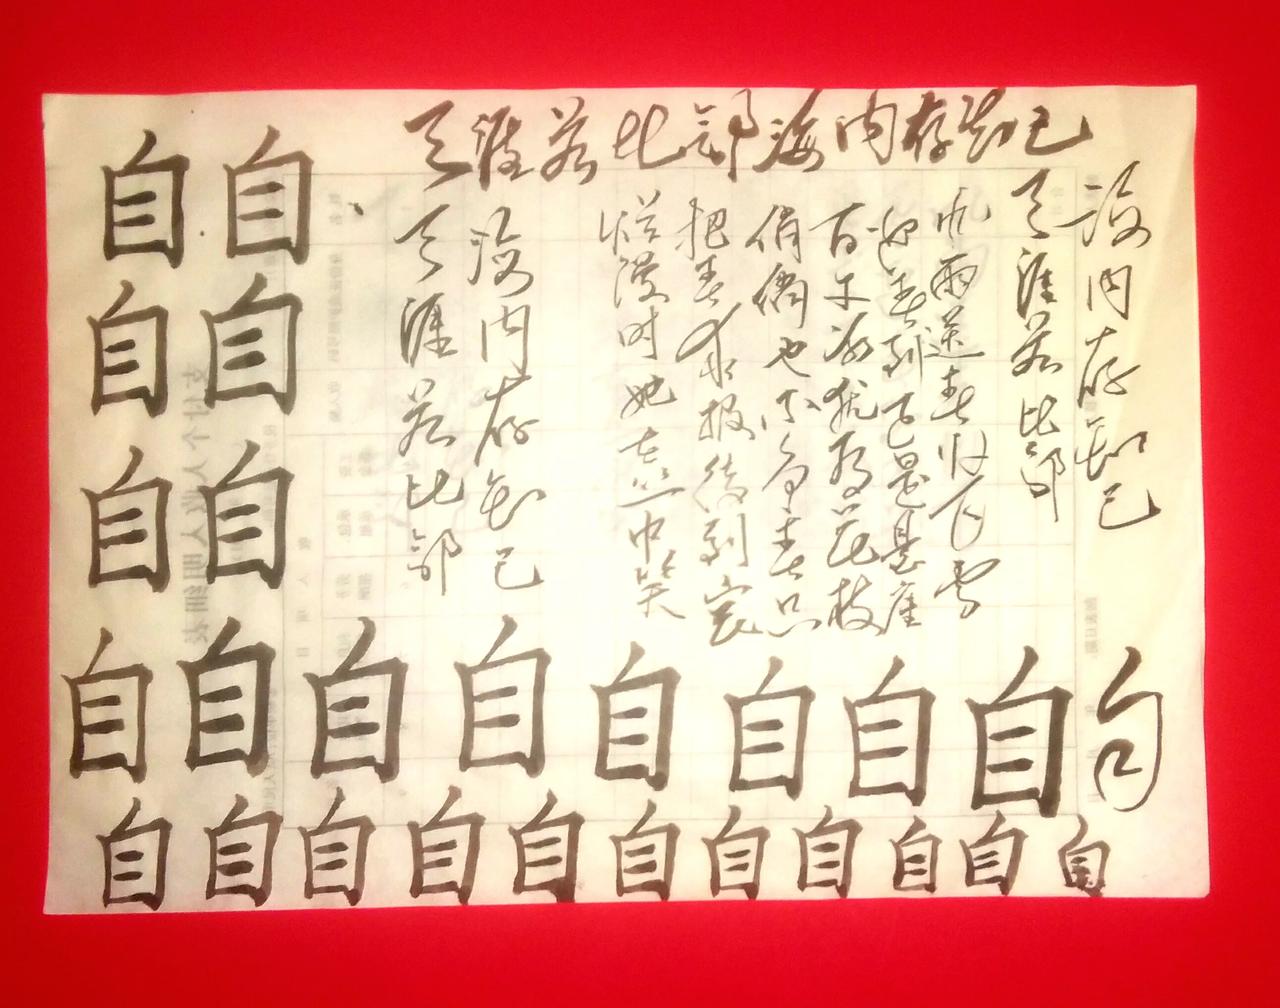 天涯若比邻海内存知己
海内存知己
天涯若比邻
风雨送春归飞雪
迎春到已是悬崖
百丈冰犹有花枝
俏俏也不争春只
把春来报待到山花
烂漫时她在丛中笑
海内存知己
天涯若比邻
自自
自自
自自
自自自自自自自自自
自自自自自自自自自自自